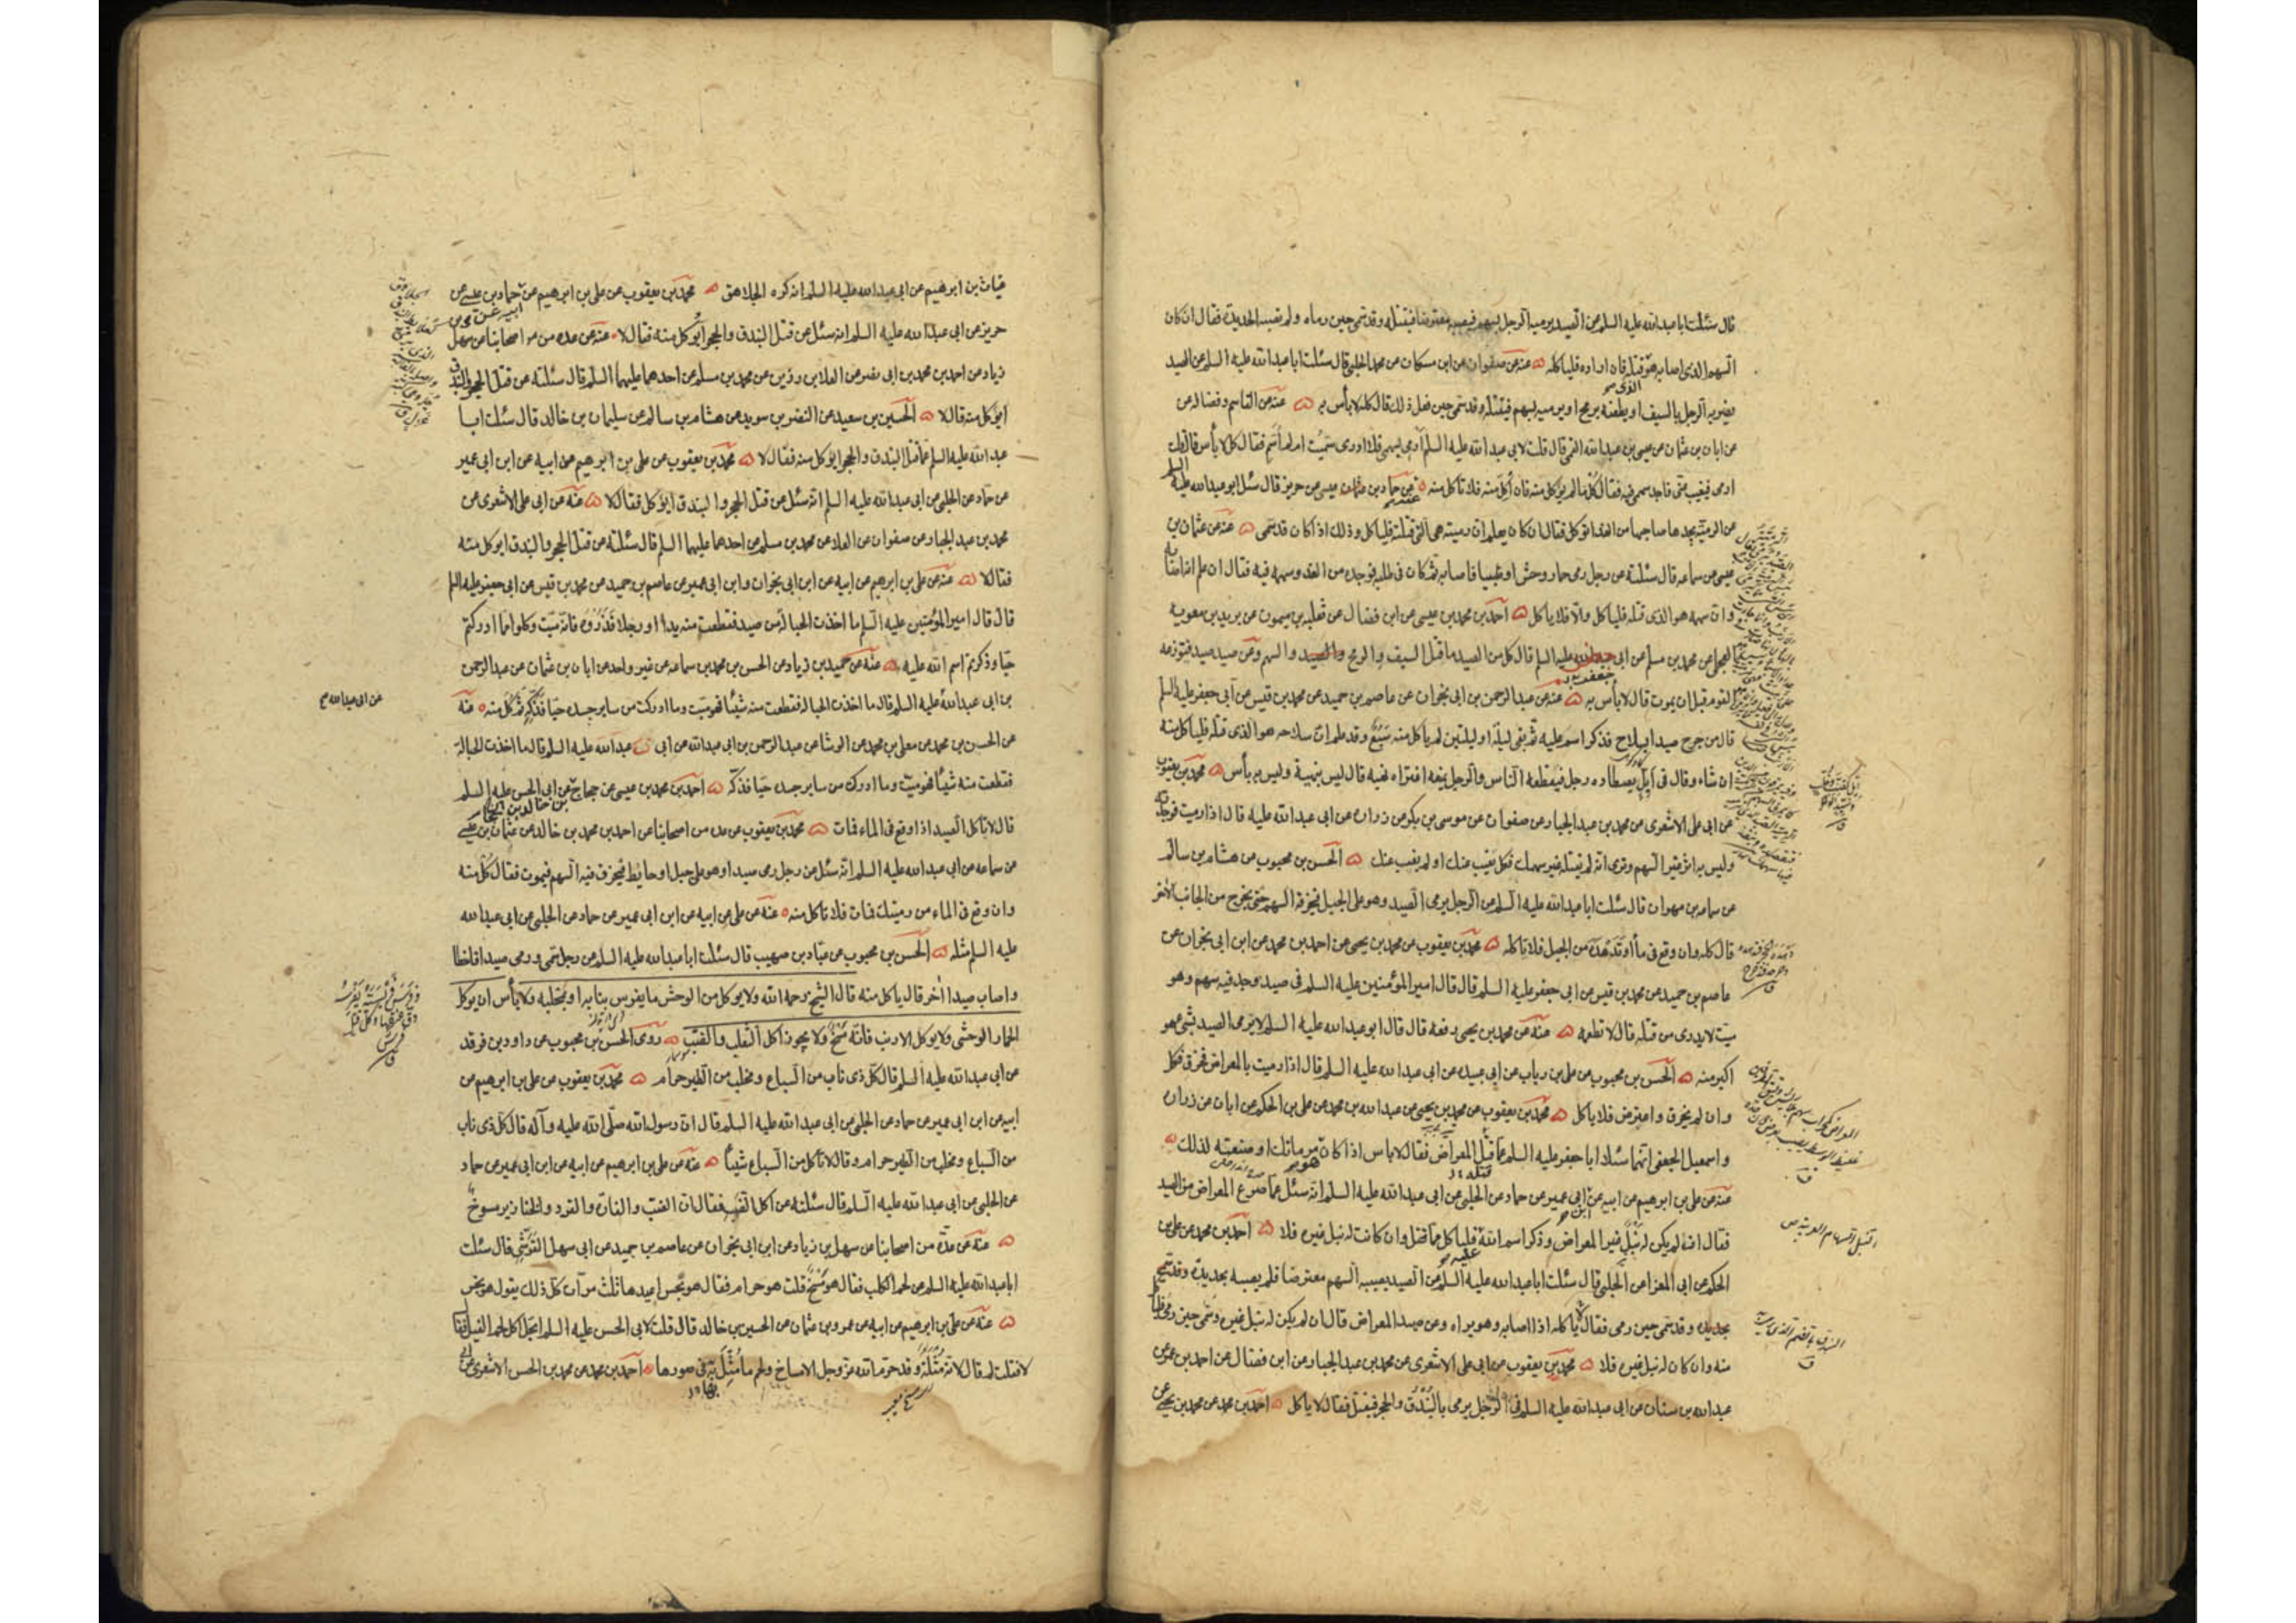 قال سئلت ابا عبدالله عليه السلم عن الصيد يرميه الرجل بسهم فيصيبه معترضا فيقتله وقد سمى حين رماه ولم تصبه الحديدة فقال ان كان
السهم الذى اصابه هو قتله فان اراده فلياكله عنه عن صفوان عن ابن مسكان عن محمد الحلبى قال سئلت ابا عبدالله عليه السلم عن الصيد
يضربه الرجل بالسيف او يطعنه برمح او يرميه بسهم فيقتله وقد سمى حين فعل ذلك قال كله لا بأس به عنه عن القاسم وفضاله عن
عن ابان بن عثمان عن عيسى بن عبدالله القمى قال قلت لابى عبدالله عليه السلم ارمى بسهمى فلا ادرى سميت ام لم اسم فقال كل لا بأس قال قلت
ارمى فيغيب عنى فاجد سهمى فيه فقال كل ما لم يؤكل منه فان اكل منه فلا تاكل منه حماد بن عيسى عن حريز قال سئل ابو عبدالله عليه السلم
عن الرمية يجدها صاحبها من الغد ايؤكل فقال ان كان يعلم ان رميته هى التى قتلته فلياكل وذلك اذا كان قد سمى عنه عن عثمان بن
عيسى عن سماعه قال سئلته عن رجل رمى حمار وحش او ظبيا فاصابه ثم كان فى طلبه فوجده من الغد وسهمه فيه فقال ان علم انه اصابه
وان سهمه هو الذى قتله فلياكل والا فلا ياكل احمد بن محمد بن عيسى عن ابن فضال عن ثعلبه بن ميمون عن بريد بن معويه
العجلى عن محمد بن مسلم عن ابى جعفر عليه السلم قال كل من الصيد ما قتل السيف والرمح والسهم وعن صيد صيد فتوزعه
القوم قبل ان يموت قال لا بأس به عنه عن عبدالرحمن بن ابى نجران عن عاصم بن حميد عن محمد بن قيس عن ابى جعفر عليه السلم
قال من جرح صيدا بسلاح فذكر اسم عليه ثم بقى ليلة او ليلتين لم يأكل منه سبع وقد علم ان سلاحه هو الذى قتله فليأكل منه
ان شاء وقال فى ايل يصطاده رجل فيقطعه الناس والرجل يتبعه افتراه نهبه قال ليس بنهبة وليس به بأس محمد بن يعقوب
عن ابى على الاشعرى عن محمد بن عبدالجبار عن صفوان عن موسى بن بكر عن زراره عن ابى عبدالله عليه قال اذا رميت فوجدته
وليس به اثر غير السهم وترى انه لم يقتله غير سهمك فكل يغيب عنك او لم يغب عنك الحسن بن محبوب عن هشام بن سالم
عن سماعه بن مهران قال سئلت ابا عبدالله عليه السلم عن الرجل يرمى الصيد وهو على الجبل فيخرقه السهم حتى يخرج من الجانب الاخر
قال كله وان وقع فى ماء او تدهده من الجبل فلا تاكله محمد بن يعقوب عن محمد بن يحيى عن احمد بن محمد عن ابن ابى نجران عن
عاصم بن حميد عن محمد بن قيس عن ابى جعفر عليه السلم قال قال امير المؤمنين عليه السلم فى صيد وجد فيه سهم وهو
ميت لا يدرى من قتله قال لا تطعمه عنه عن محمد بن يحيى رفعه قال قال ابو عبدالله عليه السلم لا يرمى الصيد بشئ هو
اكبر منه الحسن بن محبوب عن على بن رياب عن ابى عبيده عن ابى عبدالله عليه السلم قال اذا رميت بالمعراض فخرق فكل
وان لم يخرق واعترض فلا ياكل محمد بن يعقوب عن محمد بن يحيى عن عبدالله بن محمد عن على بن الحكم عن ابان عن زراره
واسمعيل الجعفى انهما سئلا ابا جعفر عليه السلم عما قتل المعراض فقال لا باس اذا كان هو مرماتك او صنعته لذلك
عنه عن على بن ابراهيم عن ابيه عن ابن ابى عمير عن حماد عن الحلبى عن ابى عبدالله عليه السلم انه سئل عما صرع المعراض من الصيد
فقال ان لم يكن له نبل غير المعراض وذكر اسم الله عليه فلياكل مما قتل وان كانت له نبل غيره فلا احمد بن محمد عن على بن
الحكم عن ابى المغرا عن الحلبى قال سئلت ابا عبدالله عليه السلم عن الصيد يصيبه السهم معترضا فلم يصبه بحديدة وقد سمى
بحديده وقد سمى حين رمى فقال ياكله اذا اصابه وهو يراه وعن صيد المعراض قال ان لم يكن له نبل غيره وسمى حين رمى فلياكل
منه وان كان له نبل غيره فلا محمد بن يعقوب عن ابى على الاشعرى عن محمد بن عبدالجبار عن ابن فضال عن احمد بن عمر عن
عبدالله بن سنان عن ابى عبدالله عليه السلم فى الرجل يرمى بالبندق والحجر فيقتل فقال لا ياكل احمد بن محمد عن محمد بن يحيى عن
غياث بن ابرهيم عن ابى عبدالله عليه السلم انه كره الجلاهق محمد بن يعقوب عن على بن ابرهيم عن ابيه عن حماد بن عيسى عن
حريز عن ابى عبدالله عليه السلم انه سئل عن قتل البندق والحجر ايؤكل منه فقال لا عنه عن عده من اصحابنا عن سهل
زياد عن احمد بن محمد بن ابى نصر عن العلا بن رزين عن محمد بن مسلم عن احدهما عليهما السلم قال سئلته عن قتل الحجر والبندق
ايؤكل منه قال لا الحسين بن سعيد عن النضر بن سويد عن هشام بن سالم عن سليمان بن خالد قال سئلت ابا
عبدالله عليه السلم عما قتل البندق والحجر ايؤكل منه فقال لا محمد بن يعقوب عن على بن ابرهيم عن ابيه عن ابن ابى عمير
عن حماد عن الحلبى عن ابى عبدالله عليه السلم انه سئل عن قتل الحجر والبندق ايؤكل فقال لا عنه عن ابى على الاشعرى عن
محمد بن عبدالجبار عن صفوان عن العلا عن محمد بن مسلم عن احدهما عليهما السلم قال سئلته عن قتل الحجر والبندق ايوكل منه
فقال لا عنه عن على بن ابرهيم عن ابيه عن ابن ابى نجران وابن ابى عمير عن عاصم بن حميد عن محمد بن قيس عن ابى جعفر عليه السلم
قال قال امير المؤمنين عليه السلم ما اخذت الحباله من صيد فقطعت منه يدا او رجلا فذروه فانه ميت وكلوا مما ادركتم
حيا وذكرتم اسم الله عليه عنه عن حميد بن زياد عن الحسن بن محمد بن سماعه عن غير واحد عن ابان بن عثمان عن عبدالرحمن
بن ابى عبدالله عليه السلم قال ما اخذت الحباله فقطعت منه شيئا فهو ميت وما ادركت من ساير جسده حيا فذكه ثم كل منه عنه
عن ابى عبدالله ع
عن الحسين بن محمد عن معلى بن محمد عن الوشا عن عبدالرحمن بن ابى عبدالله عن ابى عبدالله عليه السلم قال ما اخذت الحباله
فقطعت منه شيئا فهو ميت وما ادرك من ساير جسده حيا فذكه احمد بن محمد بن عيسى عن حجاج عن خالد بن الحجاج عن ابى الحسن عليه السلم
قال لا تاكل الصيد اذا وقع فى الماء فمات محمد بن يعقوب عن عده من اصحابنا عن احمد بن محمد بن خالد عن عثمان بن عيسى
عن سماعه عن ابى عبدالله عليه السلم انه سئل عن رجل رمى صيدا وهو على جبل او حايط فيخرق فيه السهم فيموت فقال كل منه
وان وقع فى الماء من رميتك فمات فلا تاكل منه عنه عن على عن ابيه عن ابن ابى عمير عن حماد عن الحلبى عن ابى عبدالله
عليه السلم مثله الحسن بن محبوب عن عباد بن صهيب قال سئلت ابا عبدالله عليه السلم عن رجل سمى ورمى صيدا فاخطا
واصاب صيدا اخر قال ياكل منه قال الشيخ رحمه الله ولا يوكل من الوحش ما يفرس بنابه او بمخلبه ولا بأس ان يوكل
الحمار الوحشى ولا يوكل الارنب فانه مسخ ولا يجوز اكل الثعلب والضب روى الحسن بن محبوب عن داود بن فرقد
عن ابى عبدالله عليه السلم قال كل ذى ناب من السباع ومخلب من الطير حرام محمد بن يعقوب عن على بن ابرهيم عن
ابيه عن ابن ابى عمير عن حماد عن الحلبى عن ابى عبدالله عليه السلم قال ان رسول الله صلى الله عليه وآله قال كل ذى ناب
من السباع ومخلب من الطير حرام وقال لا تاكل من السباع شيئا عنه عن على بن ابرهيم عن ابيه عن ابن ابى عمير عن حماد
عن الحلبى عن ابى عبدالله عليه السلم قال سئلته عن اكل الضب فقال ان الضب والفارة والقرد والخنازير مسوخ
عنه عن عدة من اصحابنا عن سهل بن زياد عن ابن ابى نجران عن عاصم بن حميد عن ابى سهل القرشى قال سئلت
ابا عبدالله عليه السلم عن لحم الكلب فقال هو مسخ قلت هو حرام فقال هو نجس اعيدها ثلث مرات كل ذلك يقول هو نجس
عنه عن على بن ابرهيم عن ابيه عن عمرو بن عثمان عن الحسين بن خالد قال قلت لابى الحسن عليه السلم ايحل اكل لحم الفيل فقال
لا فقلت لم قال لانه مثلة وقد حرم الله عز وجل الامساخ ولحم ما مثل به فى صورها احمد بن محمد عن محمد بن الحسن الاشعرى عن